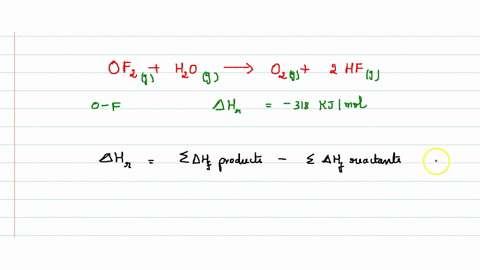 OF₂(g) + H₂O(g) ⟶ O₂(g) + 2 HF(g)
O-F ΔHr = -318 KJ/mol
ΔHr = ΣΔHf products - Σ ΔHf reactants